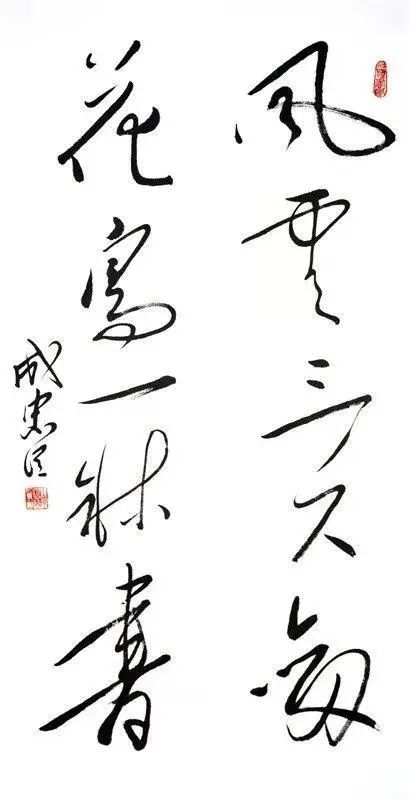 風雲三尺劍
花鳥一牀書
成忠